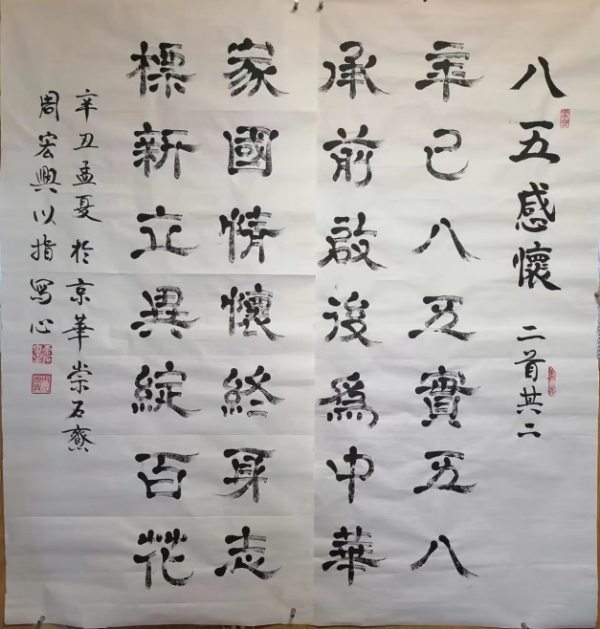 八五感懷 二首其二
年已八五實五八
承前啟後為中華
家國情懷終身志
標新立異綻百花
辛丑孟夏於京華崇石齋
周宏興以指寫心